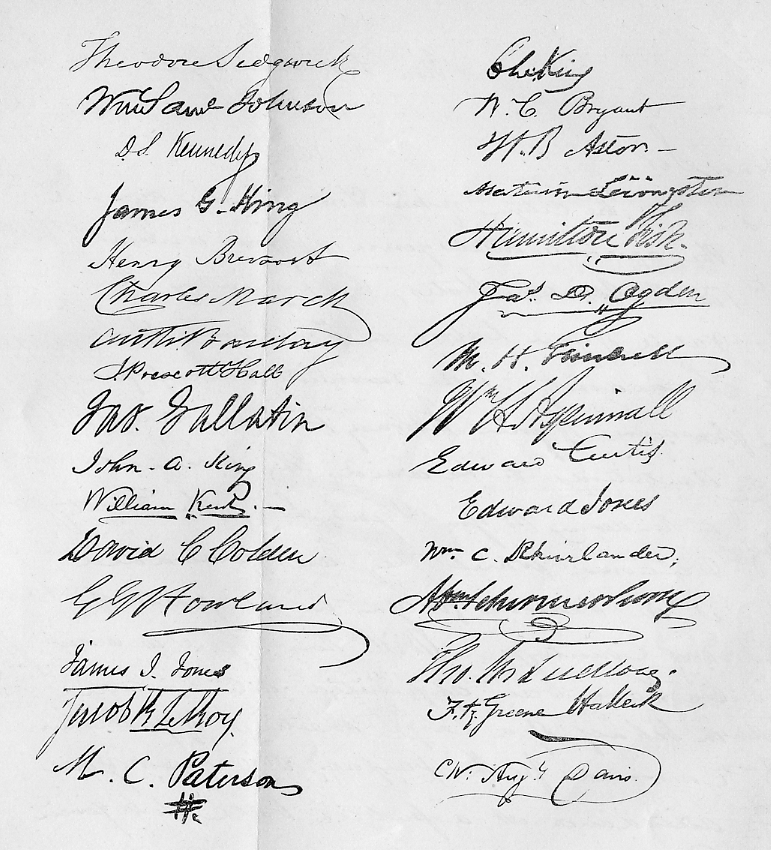 Theodore Sedgwick
Wm Saml Johnson
D. S. Kennedy
James G. King
Henry Brevoort
Charles March
Anth Barclay
J. Prescott Hall
Jas. Gallatin
John. A. King
William Kent.
David C Colden
G G Howland
James I. Jones
Jacob R LeRoy.
M. C. Paterson
Chs King
W. C. Bryant
W. B Astor
Maturin Livingston
Hamilton Fish.
Jas. D. Ogden
M. H. Grinnell
Wm H Aspinwall
Edward Curtis.
Edward Jones
Wm. C. Rhinelander,
Abm Schermerhorn
Tho. W Ludlow.
Fitz Greene Halleck
Chs. Augs Davis.